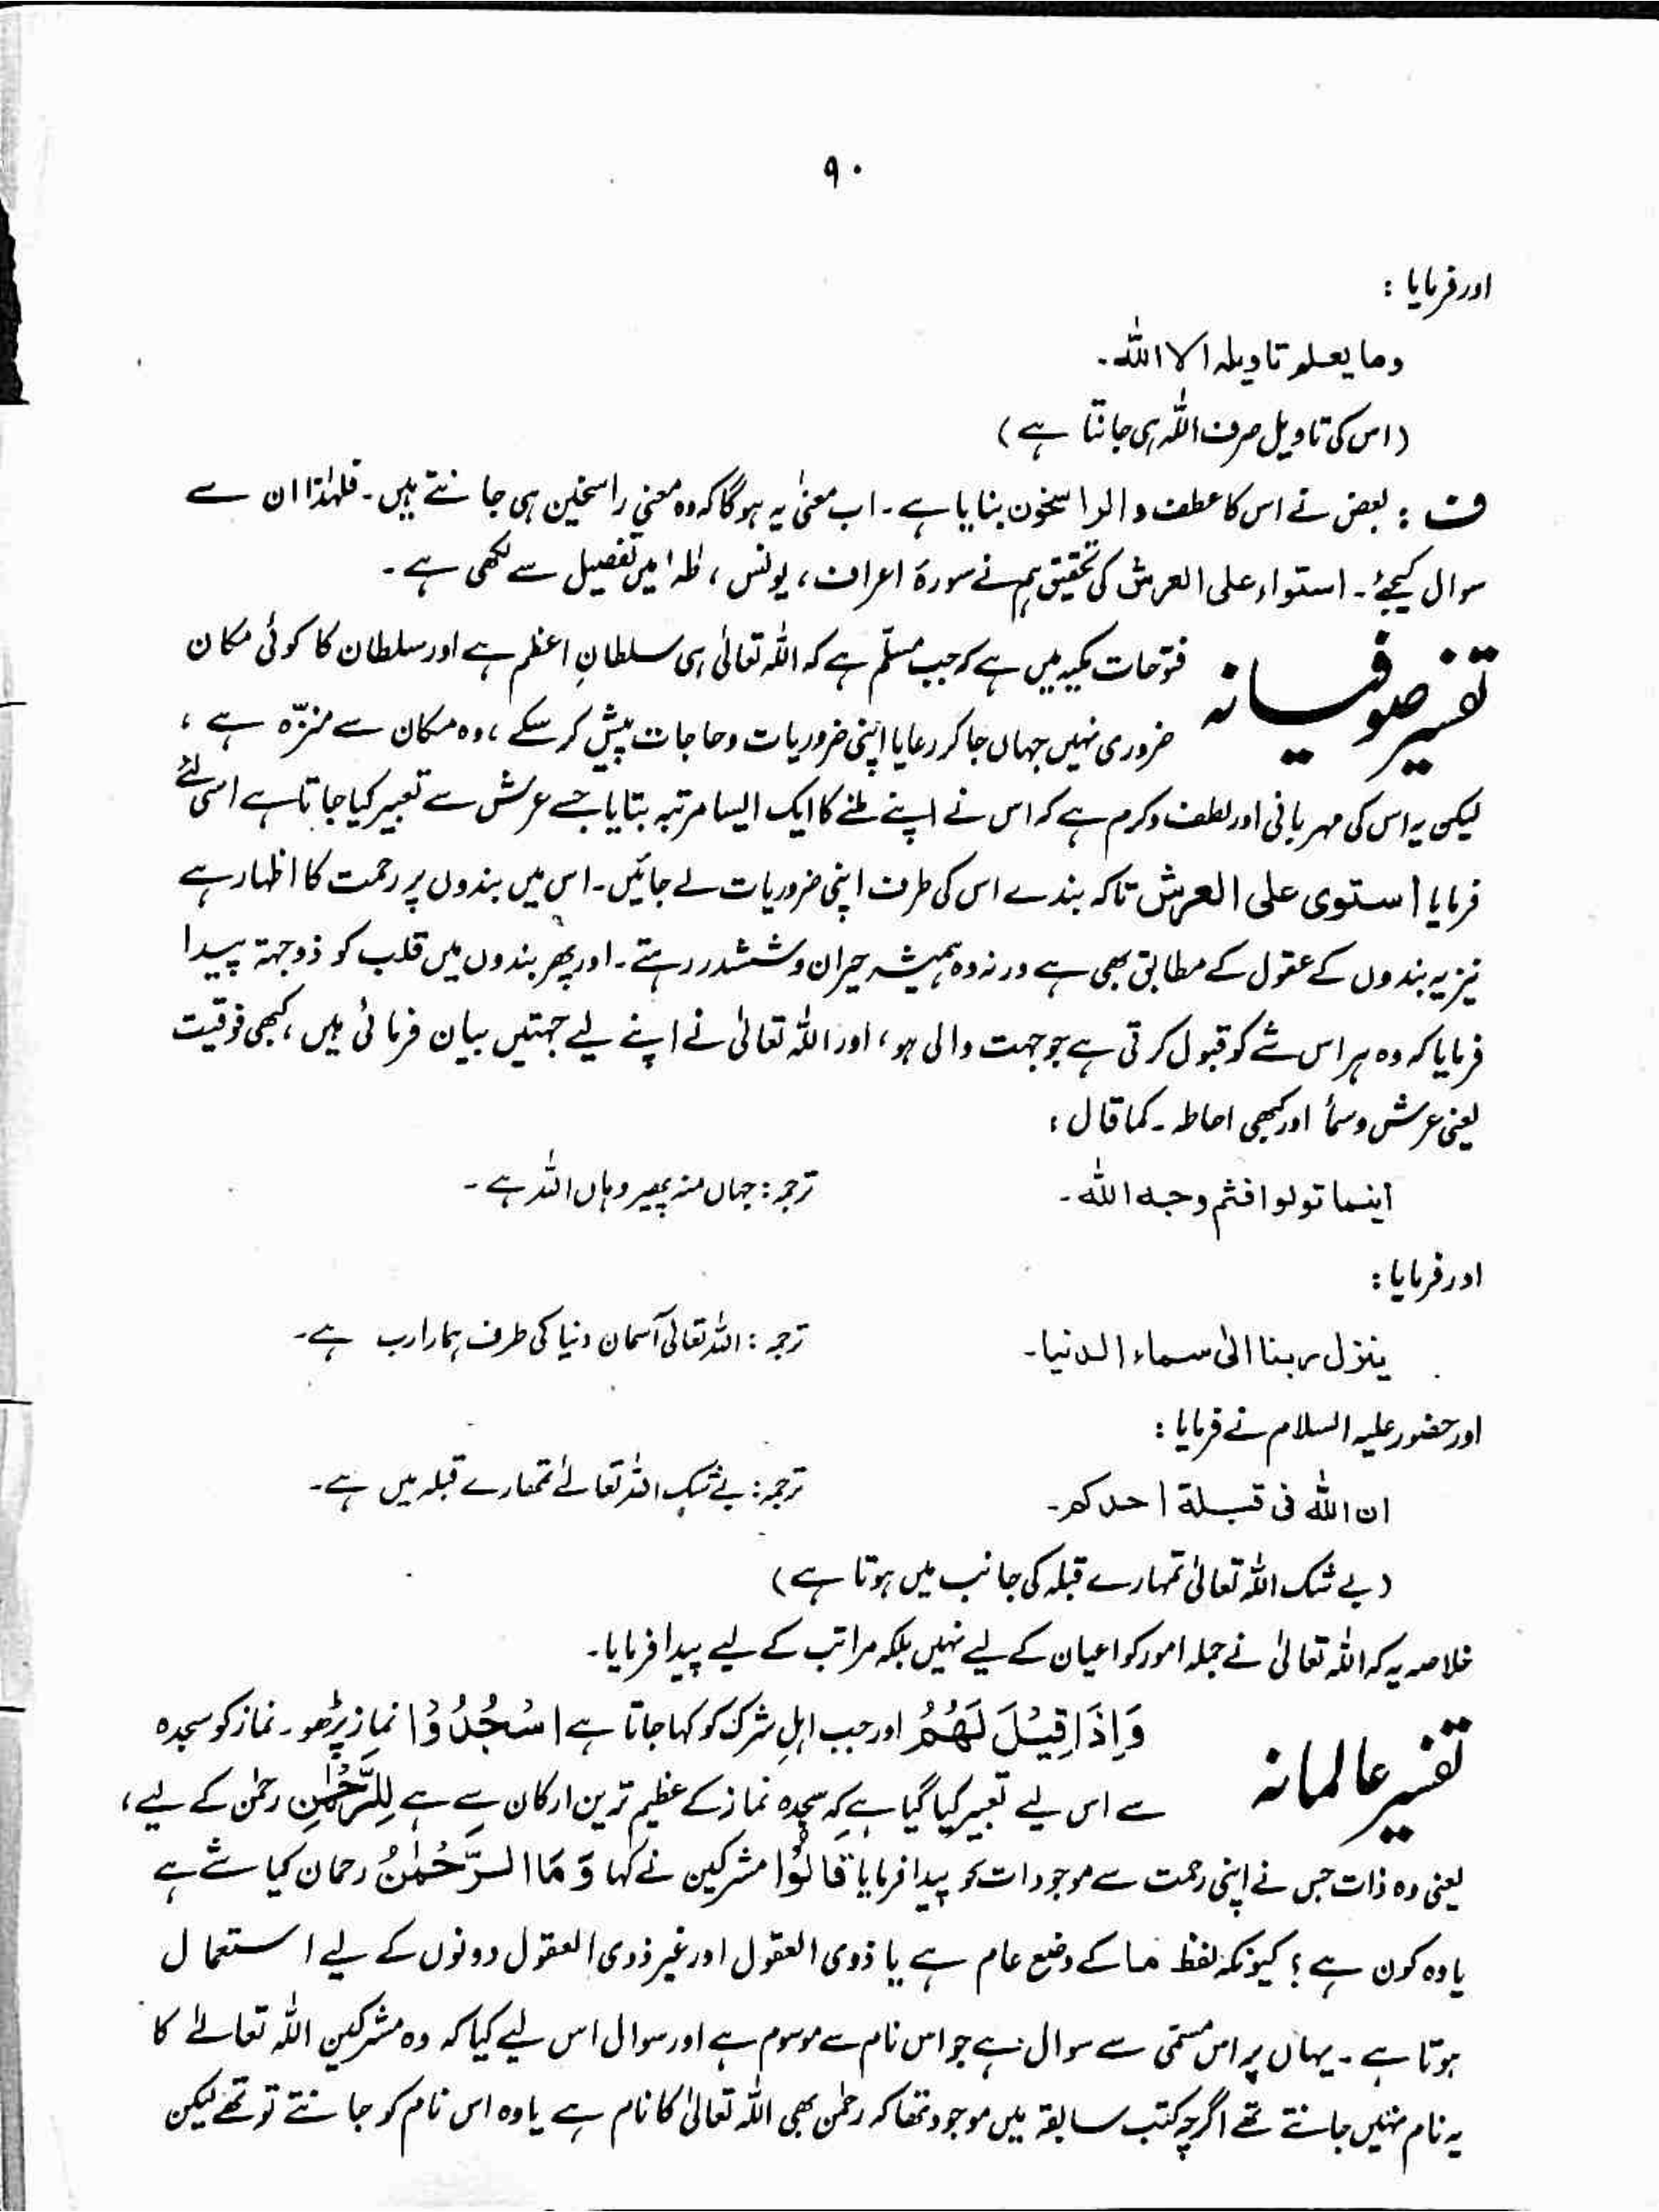 ۹۰
اور فرمایا :
وما یعلم تاویلہ الا اللہ۔
(اس کی تاویل صرف اللہ ہی جانتا ہے)
ف : بعض نے اس کا عطف والراسخون بنایا ہے۔ اب معنیٰ یہ ہوگا کہ وہ معنی راسخین ہی جانتے ہیں۔ فلہٰذا ان سے
سوال کیجئے۔ استواء علی العرش کی تحقیق ہم نے سورۃ اعراف، یونس، طٰہٰ میں تفصیل سے لکھی ہے۔
تفسیر صوفیانہ فتوحات مکیہ میں ہے کہ جب مسلّم ہے کہ اللہ تعالیٰ ہی سلطانِ اعظم ہے اور سلطان کا کوئی مکان
ضروری نہیں جہاں جا کر رعایا اپنی ضروریات و حاجات پیش کر سکے، وہ مکان سے منزّہ ہے،
لیکن یہ اس کی مہربانی اور لطف و کرم ہے کہ اس نے اپنے ملنے کا ایک ایسا مرتبہ بتایا جسے عرش سے تعبیر کیا جاتا ہے اسی لئے
فرمایا استوی علی العرش تاکہ بندے اس کی طرف اپنی ضروریات لے جائیں۔ اس میں بندوں پر رحمت کا اظہار ہے
نیز یہ بندوں کے عقول کے مطابق بھی ہے ورنہ وہ ہمیشہ حیران و ششدر رہتے۔ اور پھر بندوں میں قلب کو ذوجہۃ پیدا
فرمایا کہ وہ ہر اس شے کو قبول کرتی ہے جو جہت والی ہو، اور اللہ تعالیٰ نے اپنے لیے جہتیں بیان فرمائی ہیں، کبھی فوقیت
یعنی عرش و سمأ اور کبھی احاطہ۔ کما قال :
اینما تولوا فثم وجہ اللہ۔ ترجمہ : جہاں منہ پھیر وہاں اللہ ہے۔
اور فرمایا :
ینزل ربنا الیٰ سماء الدنیا۔ ترجمہ : اللہ تعالیٰ آسمان دنیا کی طرف ہمارا رب ہے۔
اور حضور علیہ السلام نے فرمایا :
ان اللہ فی قبلۃ احدکم۔ ترجمہ : بے شک اللہ تعالےٰ تمھارے قبلہ میں ہے۔
(بے شک اللہ تعالیٰ تمہارے قبلہ کی جانب میں ہوتا ہے)
خلاصہ یہ کہ اللہ تعالیٰ نے جملہ امور کو اعیان کے لیے نہیں بلکہ مراتب کے لیے پیدا فرمایا۔
تفسیر عالمانہ وَاِذَا قِیْلَ لَھُمُ اور جب اہلِ شرک کو کہا جاتا ہے اسْجُدُوْا نماز پڑھو۔ نماز کو سجدہ
سے اس لیے تعبیر کیا گیا ہے کہ سجدہ نماز کے عظیم ترین ارکان سے ہے لِلرَّحْمٰنِ رحمٰن کے لیے،
یعنی وہ ذات جس نے اپنی رحمت سے موجودات کو پیدا فرمایا قَالُوْا مشرکین نے کہا وَمَا الرَّحْمٰنُ رحمان کیا شے ہے
یا وہ کون ہے؟ کیونکہ لفظ ما کے وضع عام ہے یا ذوی العقول اور غیر ذوی العقول دونوں کے لیے استعمال
ہوتا ہے۔ یہاں پر اس مسمّٰی سے سوال ہے جو اس نام سے موسوم ہے اور سوال اس لیے کیا کہ وہ مشرکین اللہ تعالےٰ کا
یہ نام نہیں جانتے تھے اگرچہ کتب سابقہ میں موجود تھا کہ رحمٰن بھی اللہ تعالیٰ کا نام ہے یا وہ اس نام کو جانتے تو تھے لیکن